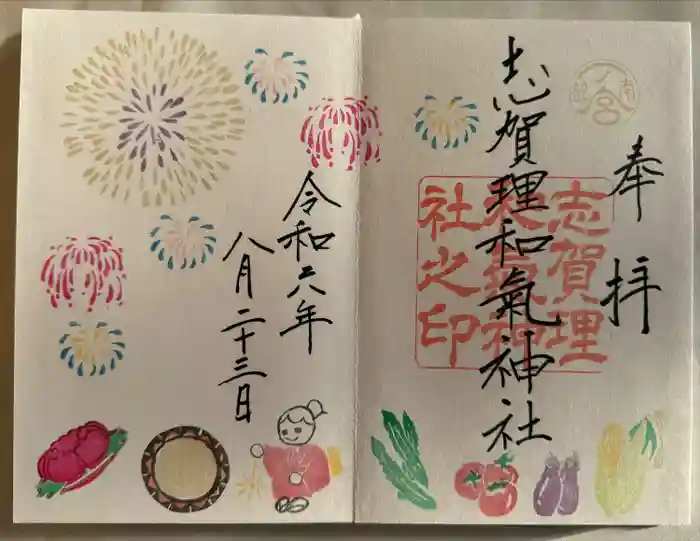 奉拝
志賀理和氣神社
志賀理
和氣神
社之印
令和六年
八月二十三日